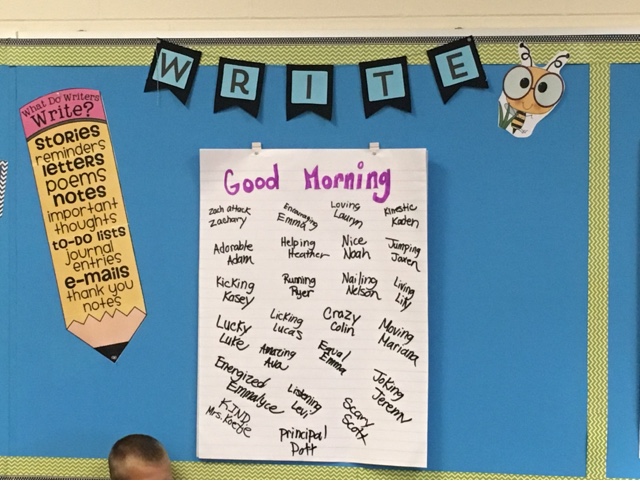 WRITE
What Do Writers
Write?
stories
reminders
letters
poems
notes
important
thoughts
to-do lists
journal
entries
e-mails
thank you
notes
Good Morning
Zach attack
Zachary
Encouraging
Emma
Loving
Lauryn
Kinestic
Kaden
Adorable
Adam
Helping
Heather
Nice
Noah
Jumping
Jaxen
Kicking
Kasey
Running
Ryer
Nailing
Nelson
Living
Lily
Lucky
Luke
Licking
Lucas
Crazy
Colin
Moving
Mariana
Amazing
Ava
Equal
Emma
Energized
Emmalyce
Listening
Levi
Joking
Jeremy
KIND
Mrs.
Scary
Scott
principal
Pott